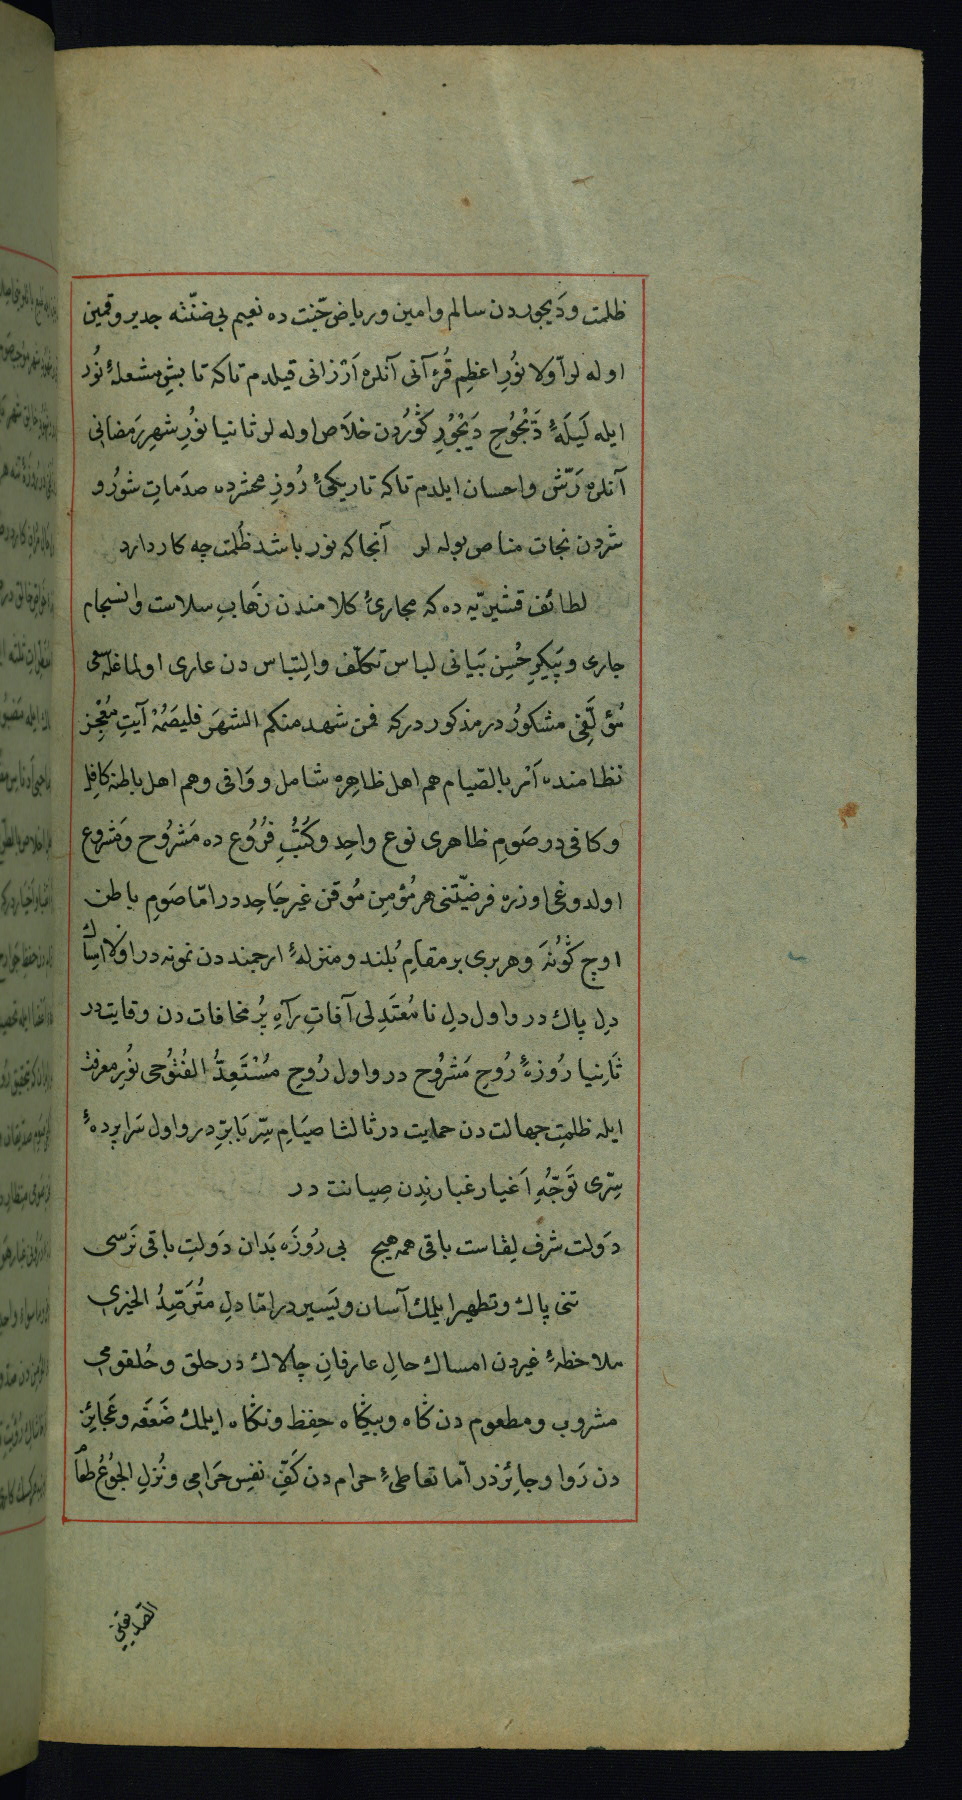 ظلمت ودَيجوردن سالم وامين ورياض جّنت ده نعيم بى ضنّتنه جدير وقمين
اوله لر اوّلا نوُرِ اعظِم قُرْآنى آنلره اَرْزانى قيلدم تاكه تابشِ مشعلۀ نوُر
ايله لَيلَۀ دَنْجوُجِ دَيْجوُرِ كوُردن خلاَص اوله لر ثانيا نوُرِ شهرِ رَمضانى
آنلره رَشّ واحسان ايلدم تاكه تاريكئ رُوزِ محشرده صدَماتِ شوُر و
شردن نجات مناص بوله لر آنجاكه نور باشد ظُلمت چه كار دارد
لطائف قشيريّه ده كه مجارئ كلامندن زهَابِ سلاست وانسجام
جارى وپَيكرِ حُسِن بَيانى لباس تكلّف والِتباس دن عارى اولماغله سعى
مُؤلَّفِى مشكورُ در مذكور دركه فمن شهد منكم الشهَر فليصَمُهْ آيتِ مُعْجِز
نظامنده اَمْر بالصّيام هم اهل ظاهِره شامل ووَافى وهم اهل باطنه كافِل
وكافى در صَومِ ظاهرى نوع واحِد وكُتبُِ فرُوُع ده مَشرُوح ومَشروع
اولدوغى اوزره فرضيّتنى هر مُؤمِن مُوقن غيرِ جَاحِد در امّا صَومِ باطن
اوچ كوُنَه وهر برى بر مقامِ بُلند ومنزلۀ ارجمند دن نمونه در اوّلا امساك
دِل پاك در واول دلِ نا مُعتَدِلى آفاتِ رَاهِ پُر مخافات دن وقايت در
ثاَنيا رُوزۀ رُوحِ مَشرُوح در واول رُوحِ مُسْتَعِدُّ الفُتوُحى نوُرِ معرفت
ايله ظلمتِ جهالت دن حمايت در ثالثا صيَامِ سِّر بَا بِرِّ در واول سَراپردۀ
سِرّى تَوَجُّهِ اَغيار غبارندِن صِيانت در
دَولت شرف لِقاست باقى همه هيچ بى رُوزَه بَدان دَولتِ باقى نَرسى
تنى پاك وتطهير ايلمك آسان ويَسير در امّا دلِ مُتَرَصِّدُ الخيرى
ملاخظۀ غيردن امساك حالِ عارفانِ چالاك در حلق وحُلقومى
مشروب ومطعوم دن كاه وبيكاه حِفِظ ونكاه ايلمك ضَعَفَه وعَجايِز
دن رَوا وجايِز در امّا تعاطئِ حرام دن كَفِّ نفِس حَرامى ونُزلِ الجُوُعُ طعاُ
القصديقنى